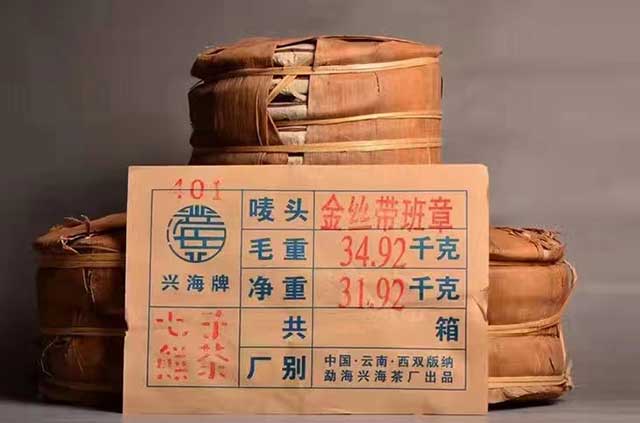 401
唛头 金丝带班章
毛重 34.92千克
兴海牌
净重 31.92千克
七子
熊茶
共 箱
厂别 中国·云南·西双版纳
勐海兴海茶厂出品